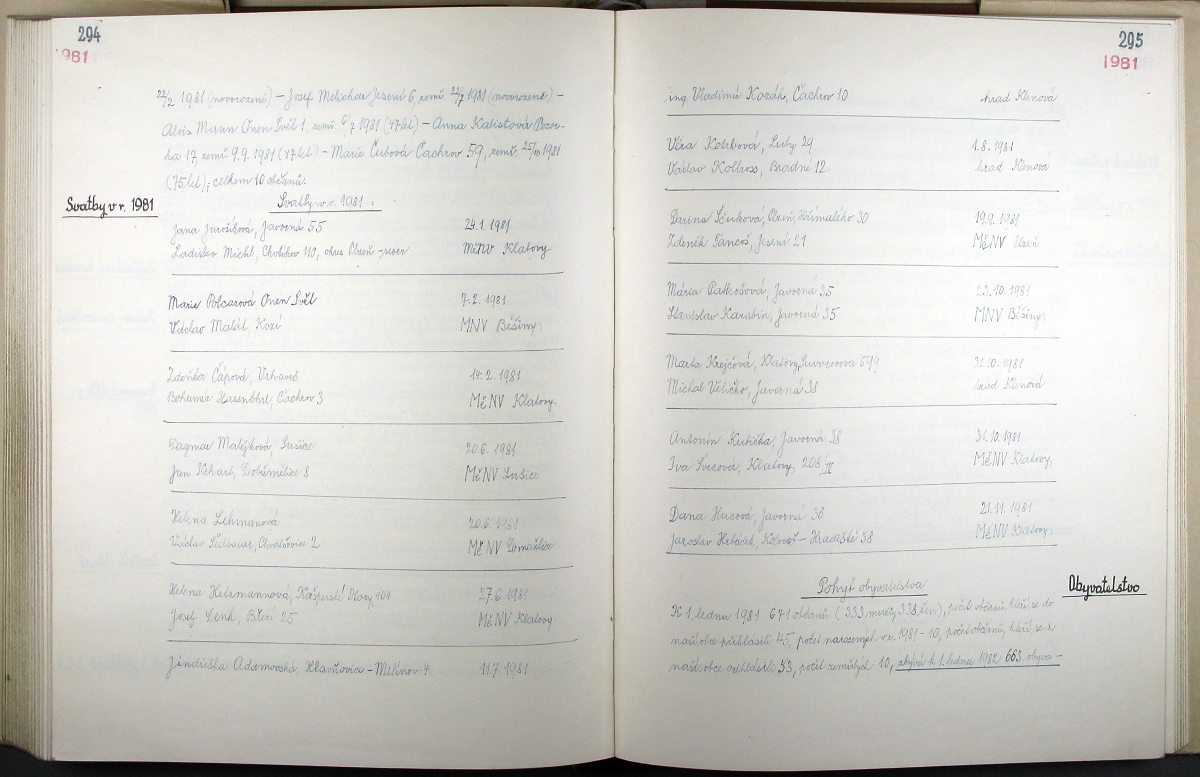 294
1981
22/2 1981 (novorozenė) – Josef Melichar Jesení 6, zemř. 22/2 1981 (novorozeně) –
Alois Mann Onen Svět 1, zemř. 6/7 1981 (77 let) – Anna Kalistová
17, zemř. 9.9. 1981 (77 let) – Marie Čubová Čachrov 59, zemř. 25/10 1981
(75 let); celkem 10 občanů.
Svatby v r. 1981
Svatby v r. 1981:
Jana Jarošíková, Javorná 55 24.1. 1981
Ladislav Michl, Chotíkov 110, okres Plzeň-sever MěNV Klatovy
Marie Polcarová Onen Svět 7.2. 1981
Václav Malát, Kozí MNV Běšiny
Zdeňka Čápová, Vrhaveč 14.2. 1981
Bohumír Hasenöhrl, Čachrov 3 MěNV Klatovy
Dagmar Matějková, Sušice 20.6. 1981
Jan Kehart, Dobřemilice 8 MěNV Sušice
Helena Lehmanová 20.6. 1981
Václav Sedlbauer, Chvalšovice 2 MěNV Domažlice
Helena Hetzmannova, Kašperské Hory, 104 27.6. 1981
Josef Denk, Březí 25 MěNV Klatovy
Jindřiška Adamovská, Hlavňovice – Milínov 4 11.7. 1981
295
1981
ing. Vladimír Kozák, Čachrov 10 hrad Klenová
Věra Kotrbová, Luby 29 1.8. 1981
Václav Kollross, Bradné 12 hrad Klenová
Darina Ščurková, Plzeň, Hřímalého 30 19.9. 1981
Zdeněk Tancoš, Jesení 21 MěNV Plzeň
Mária Patkošová, Javorná 35 23.10. 1981
Stanislav Karabin, Javorná 35 MNV Běšiny
Marta Krejčová, Klatovy, Suvorovova 31.10. 1981
Michal Veličko, Javorná 38 hrad Klenová
Antonín Kubička, Javorná 38 31.10. 1981
Iva Švecová, Klatovy, 208/IV MěNV Klatovy
Dana Hucová, Javorná 36 21.11. 1981
Jaroslav Hrbáček, – Hradiště 38 MěNV Klatovy
Pohyb obyvatelstva
Obyvatelstvo
K 1. lednu 1981 671 občanů (333 mužů, 338 žen), počet občanů, kteří se do
naší obce přihlásili 45, počet narozených v r. 1981 – 10, počet občanů, kteří se z
naší obce odhlásili 53, počet zemřelých 10, zbývá k 1. lednu 1982 663 obyva-